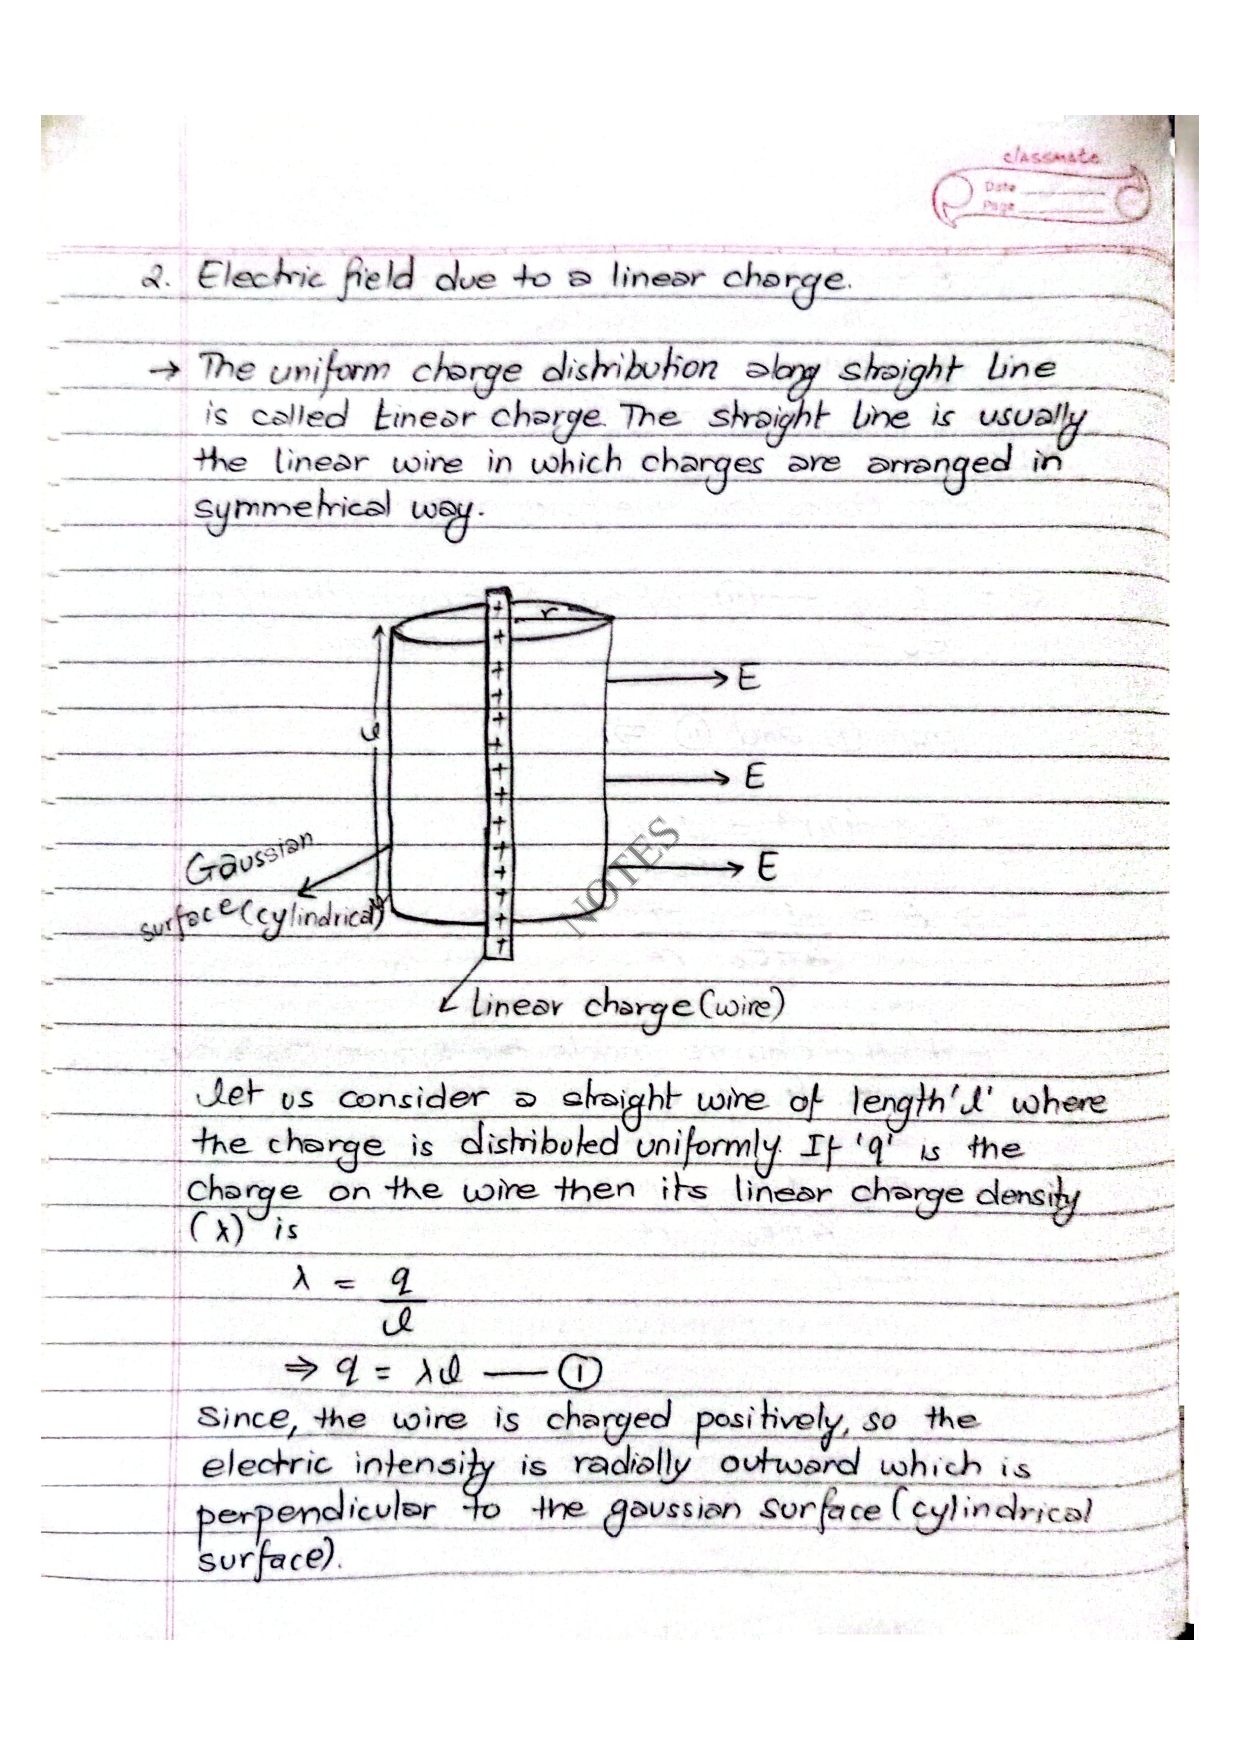 classmate
Date
Page
2. Electric field due to a linear charge.
→ The uniform charge distribution along straight line
is called linear charge. The straight line is usually
the linear wire in which charges are arranged in
symmetrical way.
r
E
l
E
E
Gaussian
surface (cylindrical)
NOTES
linear charge (wire)
let us consider a straight wire of length 'l' where
the charge is distributed uniformly. If 'q' is the
charge on the wire then its linear charge density
(λ) is
λ = q
l
⇒ q = λl —— ①
Since, the wire is charged positively, so the
electric intensity is radially outward which is
perpendicular to the gaussian surface (cylindrical
surface).